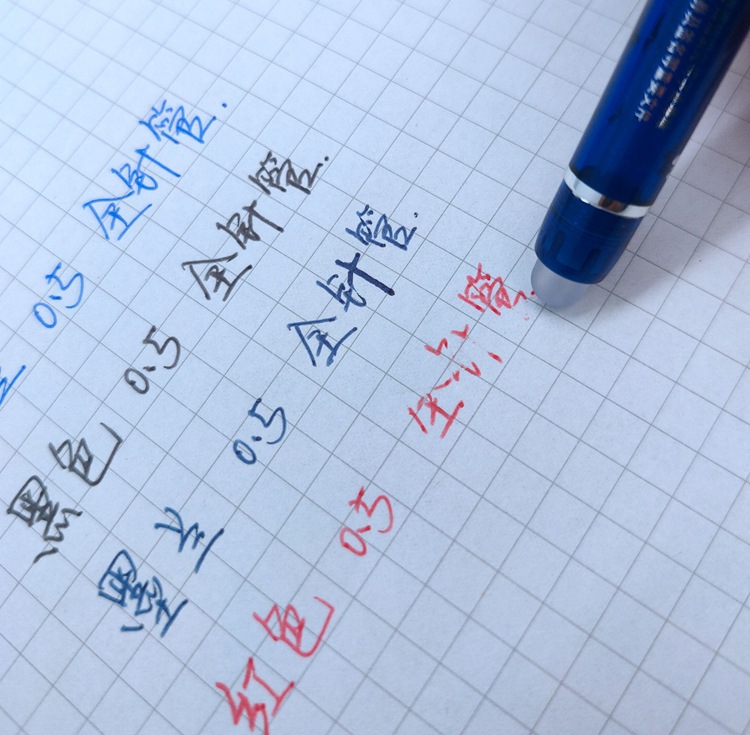 兰 0.5 全针管.
黑色 0.5 全针管.
墨兰 0.5 全针管.
红色 0.5 全针管.